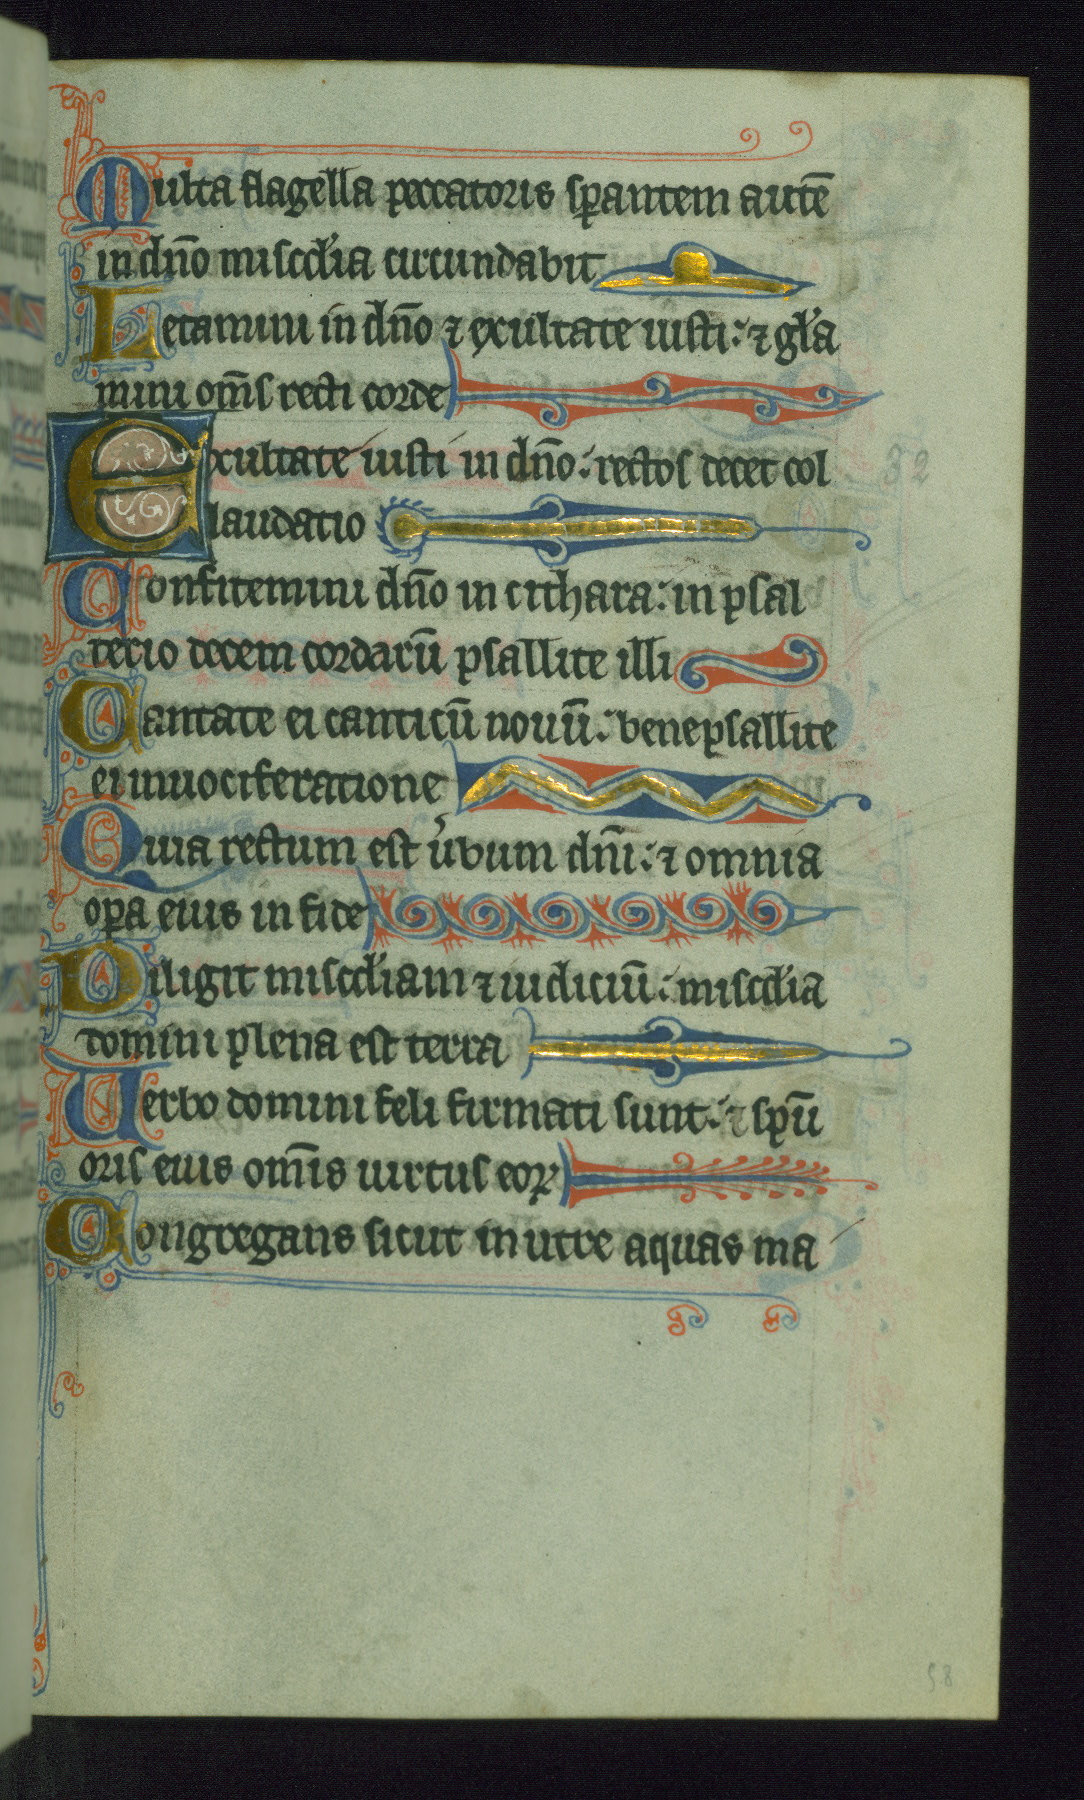 Multa flagella peccatoris sꝑantem autē
in dn̄o miscd'ia circundabit
Letamini in dn̄o ⁊ exultate iusti: ⁊ gl'a
mini om̄s recti corde
Exultate iusti in dn̄o: rectos decet col
laudatio
Confitemini dn̄o in cithara: in psal
terio decem cordarū psallite illi
Cantate ei canticū nouū: bene psallite
ei in uociferatione
Quia rectum est u'bum dn̄i: ⁊ omnia
oꝑa eius in fide
Diligit miscd'iam ⁊ iudiciū: miscd'ia
domini plena est terra
Uerbo domini celi firmati sunt: ⁊ spū
oris eius om̄is uirtus eoꝝ
Congregans sicut in utre aquas ma
32
58